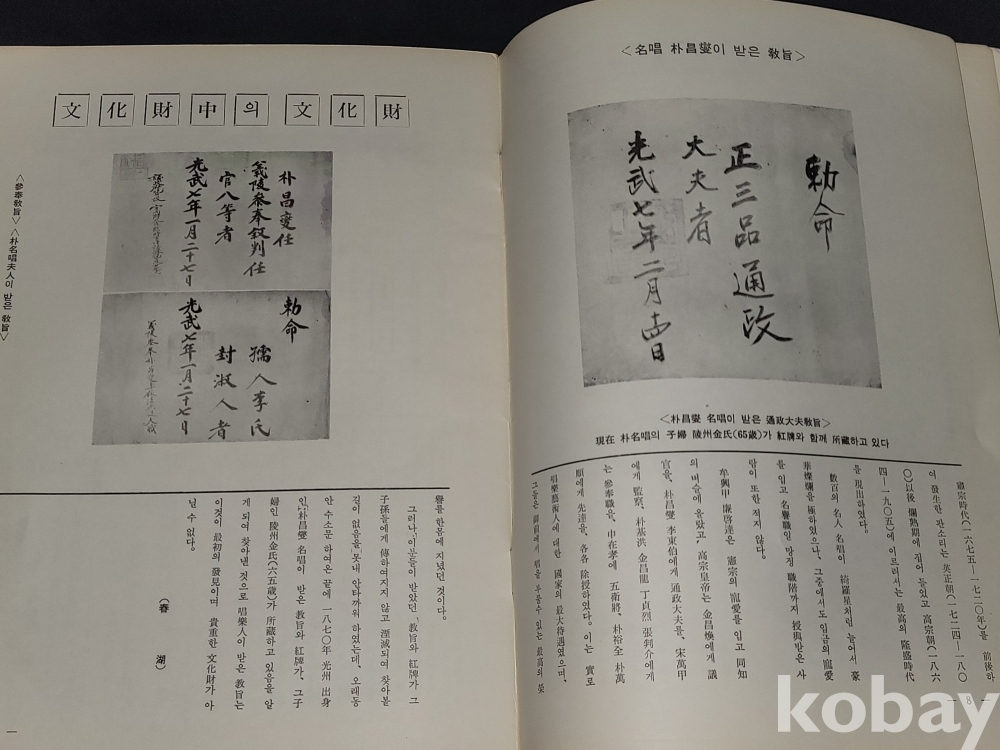 <名唱 朴昌燮이 받은 敎旨>
勅命
正三品通政
大夫者
光武七年二月 日
<朴昌燮 名唱이 받은 通政大夫敎旨>
現在 朴名唱의 子婦 陵州金氏(65歲)가 紅牌와 함께 所藏하고 있다
憲宗時代(一六七五—一七二〇年)를 前後하
여 發生한 판소리는 英正朝(一七二四—一八〇
〇)以後 爛熟期에 접어 들었고 高宗朝(一八六
四—一九〇五)에 이르러서는 最高의 隆盛時代
를 現出하였다。
數百의 名人 名唱이 綺羅星처럼 늘어서 豪
華燦爛을 極하였으나、그중에서도 임금의 寵愛
를 입고 名譽職일 망정 職階까지 授與받은 사
람이 또한 적지 않다。
牟興甲 廉啓達은 憲宗의 寵愛를 입고 同知
의 벼슬에 올랐고、高宗皇帝는 金昌煥에게 議
官을、朴昌燮 李東伯에게 通政大夫를、宋萬甲
에게 監察、朴基洪 金昌龍 丁貞烈 張判介에게
는 參奉職을、申在孝에 五衛將、朴裕全 朴萬
順에게 先達을、各各 除授하였다。이는 實로
唱樂藝術人에 대한 國家의 最大待遇였으며、
그들은 御前에서 唱을 부를수 있는 最高의 榮
— 8 —
文化財中의 文化財
朴昌燮任
義陵參奉敍判任
官八等者
光武七年一月二十七日
勅命
孺人李氏
封淑人者
光武七年一月二十七日
<參奉敎旨> <朴名唱夫人이 받은 敎旨>
譽를 한몸에 지녔던 것이다。
그러나、이분들이 받았던 「敎旨와 紅牌가 그
子孫들에게 傳하여지지 않고 湮滅되여 찾아볼
길이 없음을 못내 안타까워 하였는데、오래동
안 수소문 하여온 끝에 一八七〇年 光州 出身
인「朴昌燮 名唱이 받은 敎旨와 紅牌가、그子
婦인 陵州金氏(六五歲)가 所藏하고 있음을 알
게 되여 찾아낸 것으로 唱樂人이 받은 敎旨는
이것이 最初의 發見이며 貴重한 文化財가 아
닐 수 없다。
(春 湖)
kobay